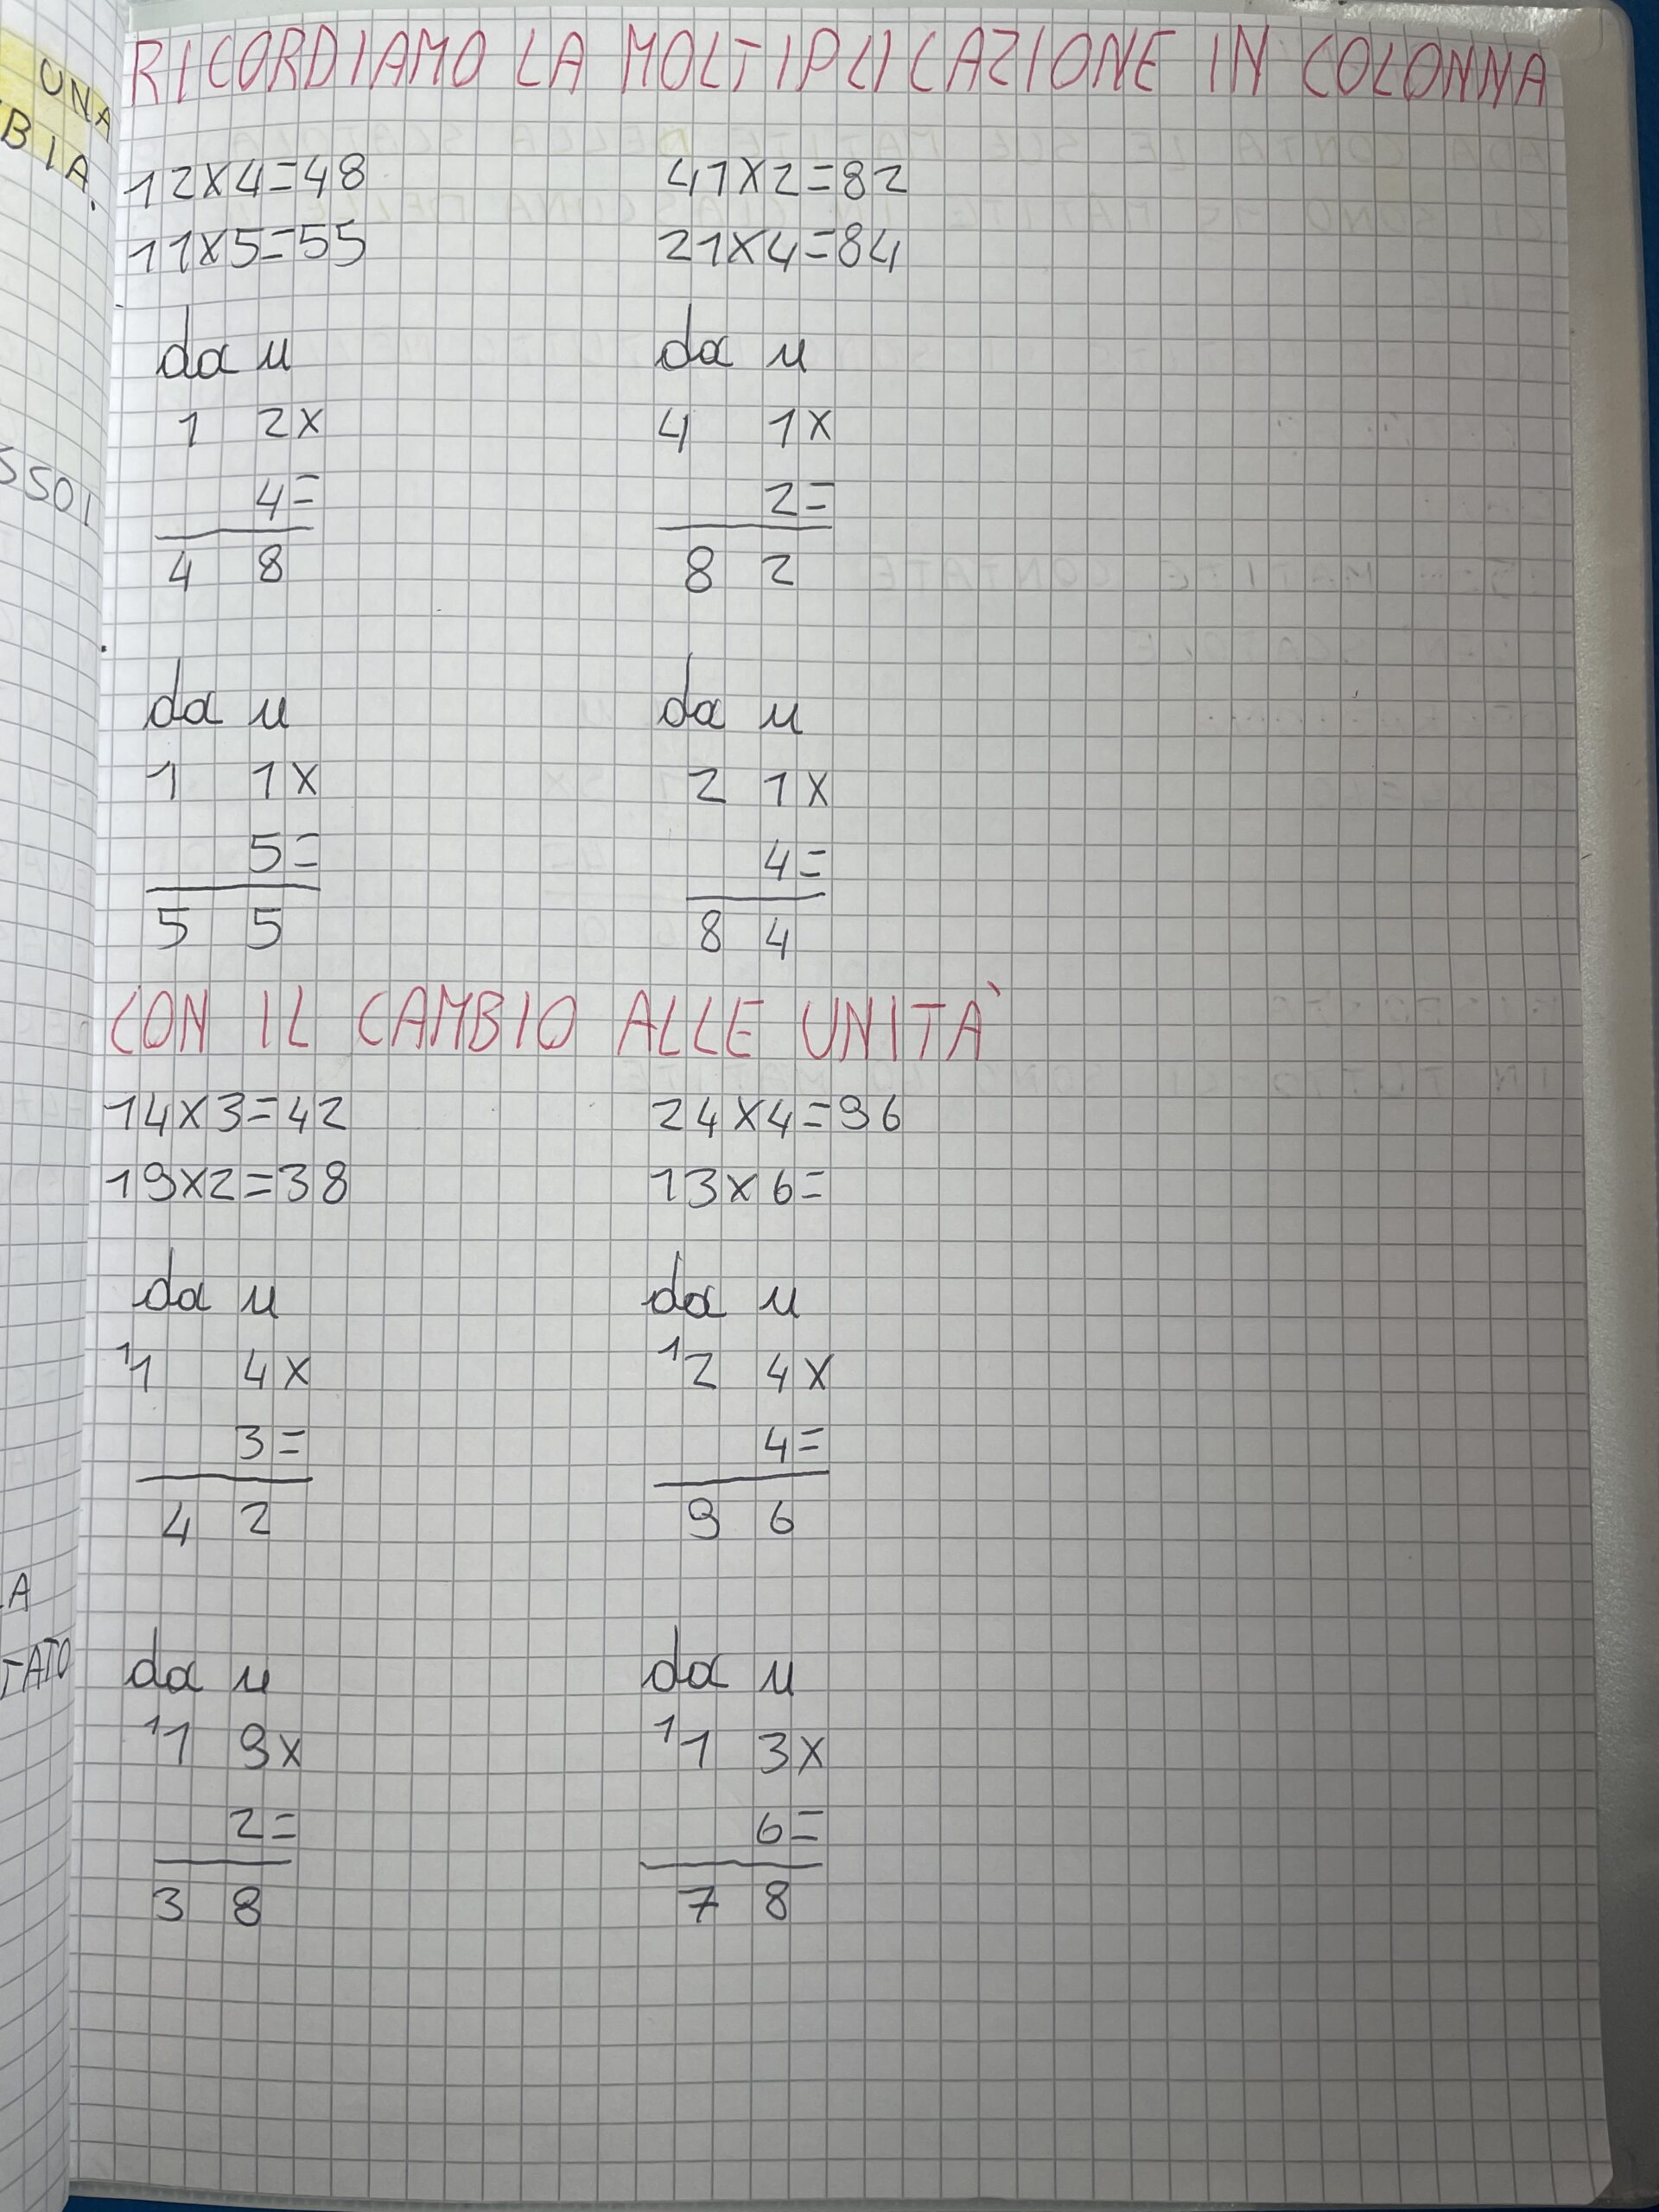 RICORDIAMO LA MOLTIPLICAZIONE IN COLONNA
12x4=48 41x2=82
11x5=55 21x4=84
da u da u
1 2x 4 1x
4= 2=
4 8 8 2
da u da u
1 1x 2 1x
5= 4=
5 5 8 4
CON IL CAMBIO ALLE UNITÀ
14x3=42 24x4=96
19x2=38 13x6=
da u da u
1 1 4x 1 2 4x
3= 4=
4 2 9 6
da u da u
1 1 9x 1 1 3x
2= 6=
3 8 7 8
UNA
BIA.
SSOI
A
TATO